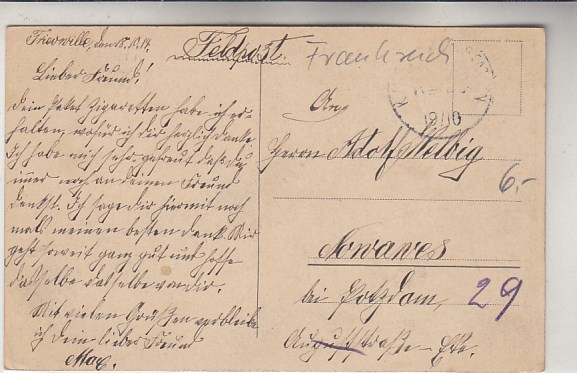 den 18.10.14.
Lieber Freund!
Dein Paket Zigaretten habe ich er-
halten, wofür ich dir herzlich danke
Ich habe mich sehr gefreut daß du
immer noch an deinen Freund
denkst. Ich sage dir hiermit noch
mals meinen besten Dank. Mir
geht soweit ganz gut und hoffe
dasselbe von dir.
Mit vielen Grüßen verbleibe
ich dein lieber Freund
Max.
Feldpost.
Frankreich
An
Herrn Adolf Helbig
6.-
Nowawes
bei Potzdam,
29
Auguststraße